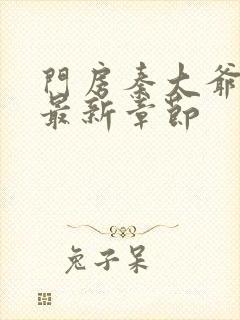 門房秦大爺
最新章節
兔子呆